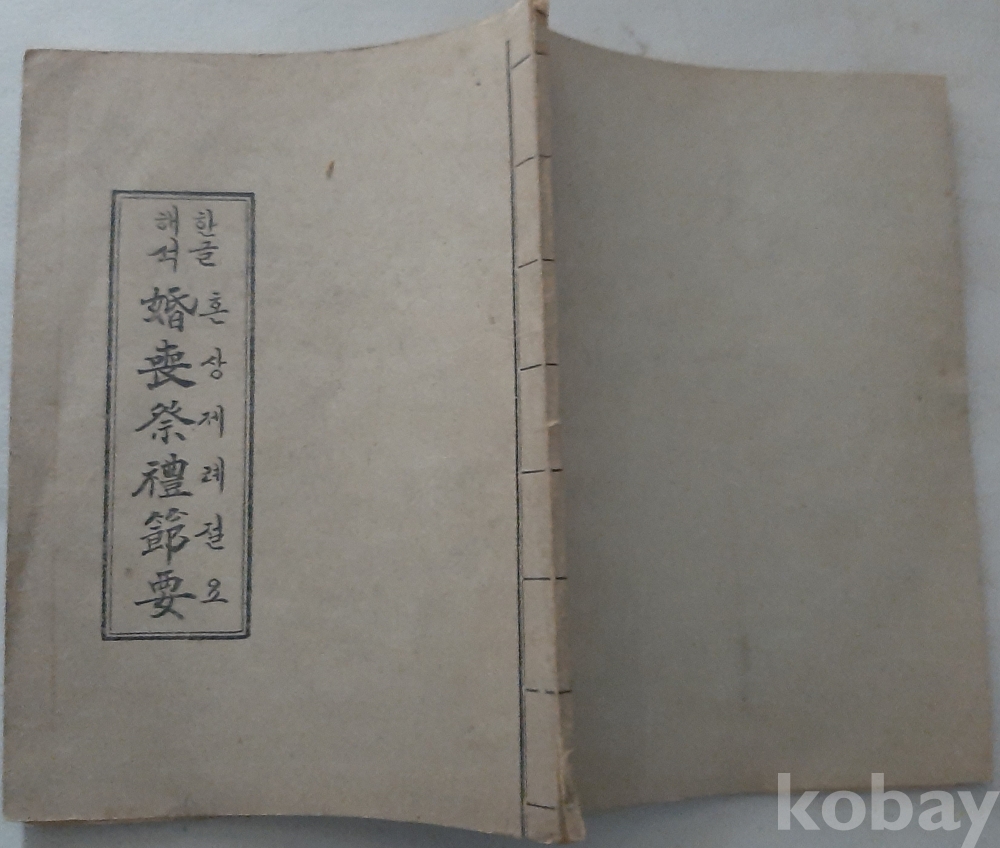 한글
해석
婚喪祭禮節要
혼상제례절요
kobay